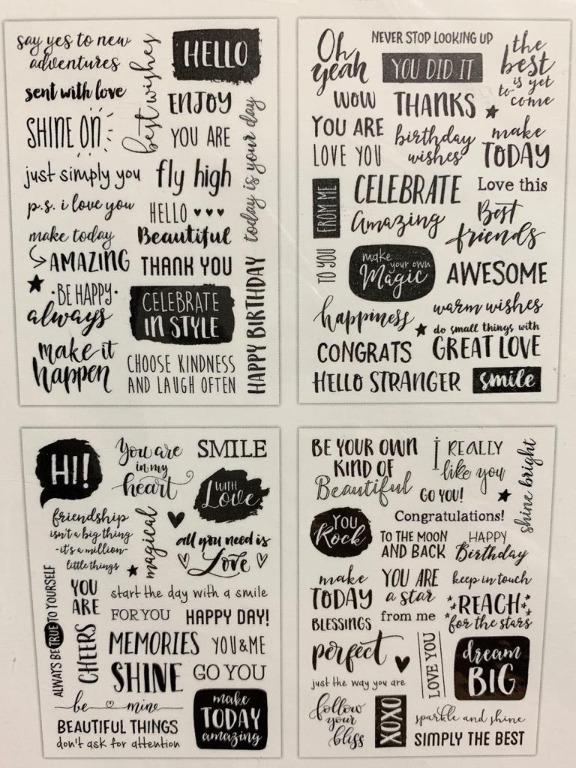 say yes to new
adventures
best wishes
HELLO
sent with love
ENJOY
SHINE ON
YOU ARE
just simply you
fly high
today is your day
p.s. i love you
HELLO
make today
Beautiful
AMAZING
THANK YOU
BE HAPPY
always
CELEBRATE
IN STYLE
HAPPY BIRTHDAY
make it
happen
CHOOSE KINDNESS
AND LAUGH OFTEN
Oh
yeah
NEVER STOP LOOKING UP
YOU DID IT
the
best
is yet
to come
WOW
THANKS
YOU ARE
LOVE YOU
birthday
wishes
make
TODAY
FROM ME
CELEBRATE
Love this
Amazing
Best
friends
TO YOU
make
your own
Magic
AWESOME
happiness
warm wishes
do small things with
GREAT LOVE
CONGRATS
HELLO STRANGER
smile
HI!
You are
in my
heart
SMILE
WITH
Love
friendship
isn't a big thing
-it's a million-
little things
magical
all you need is
Love
ALWAYS BE TRUE TO YOURSELF
YOU
ARE
start the day with a smile
FOR YOU
HAPPY DAY!
CHEERS
MEMORIES
YOU&ME
SHINE
GO YOU
be mine
BEAUTIFUL THINGS
don't ask for attention
make
TODAY
amazing
BE YOUR OWN
KIND OF
Beautiful
i REALLY
like you
GO YOU!
shine bright
YOU
Rock
Congratulations!
TO THE MOON
AND BACK
HAPPY
Birthday
make
TODAY
BLESSINGS
YOU ARE
a star
from me
keep in touch
REACH
for the stars
perfect
just the way you are
LOVE YOU
dream
BIG
follow
your
bliss
XOXO
sparkle and shine
SIMPLY THE BEST